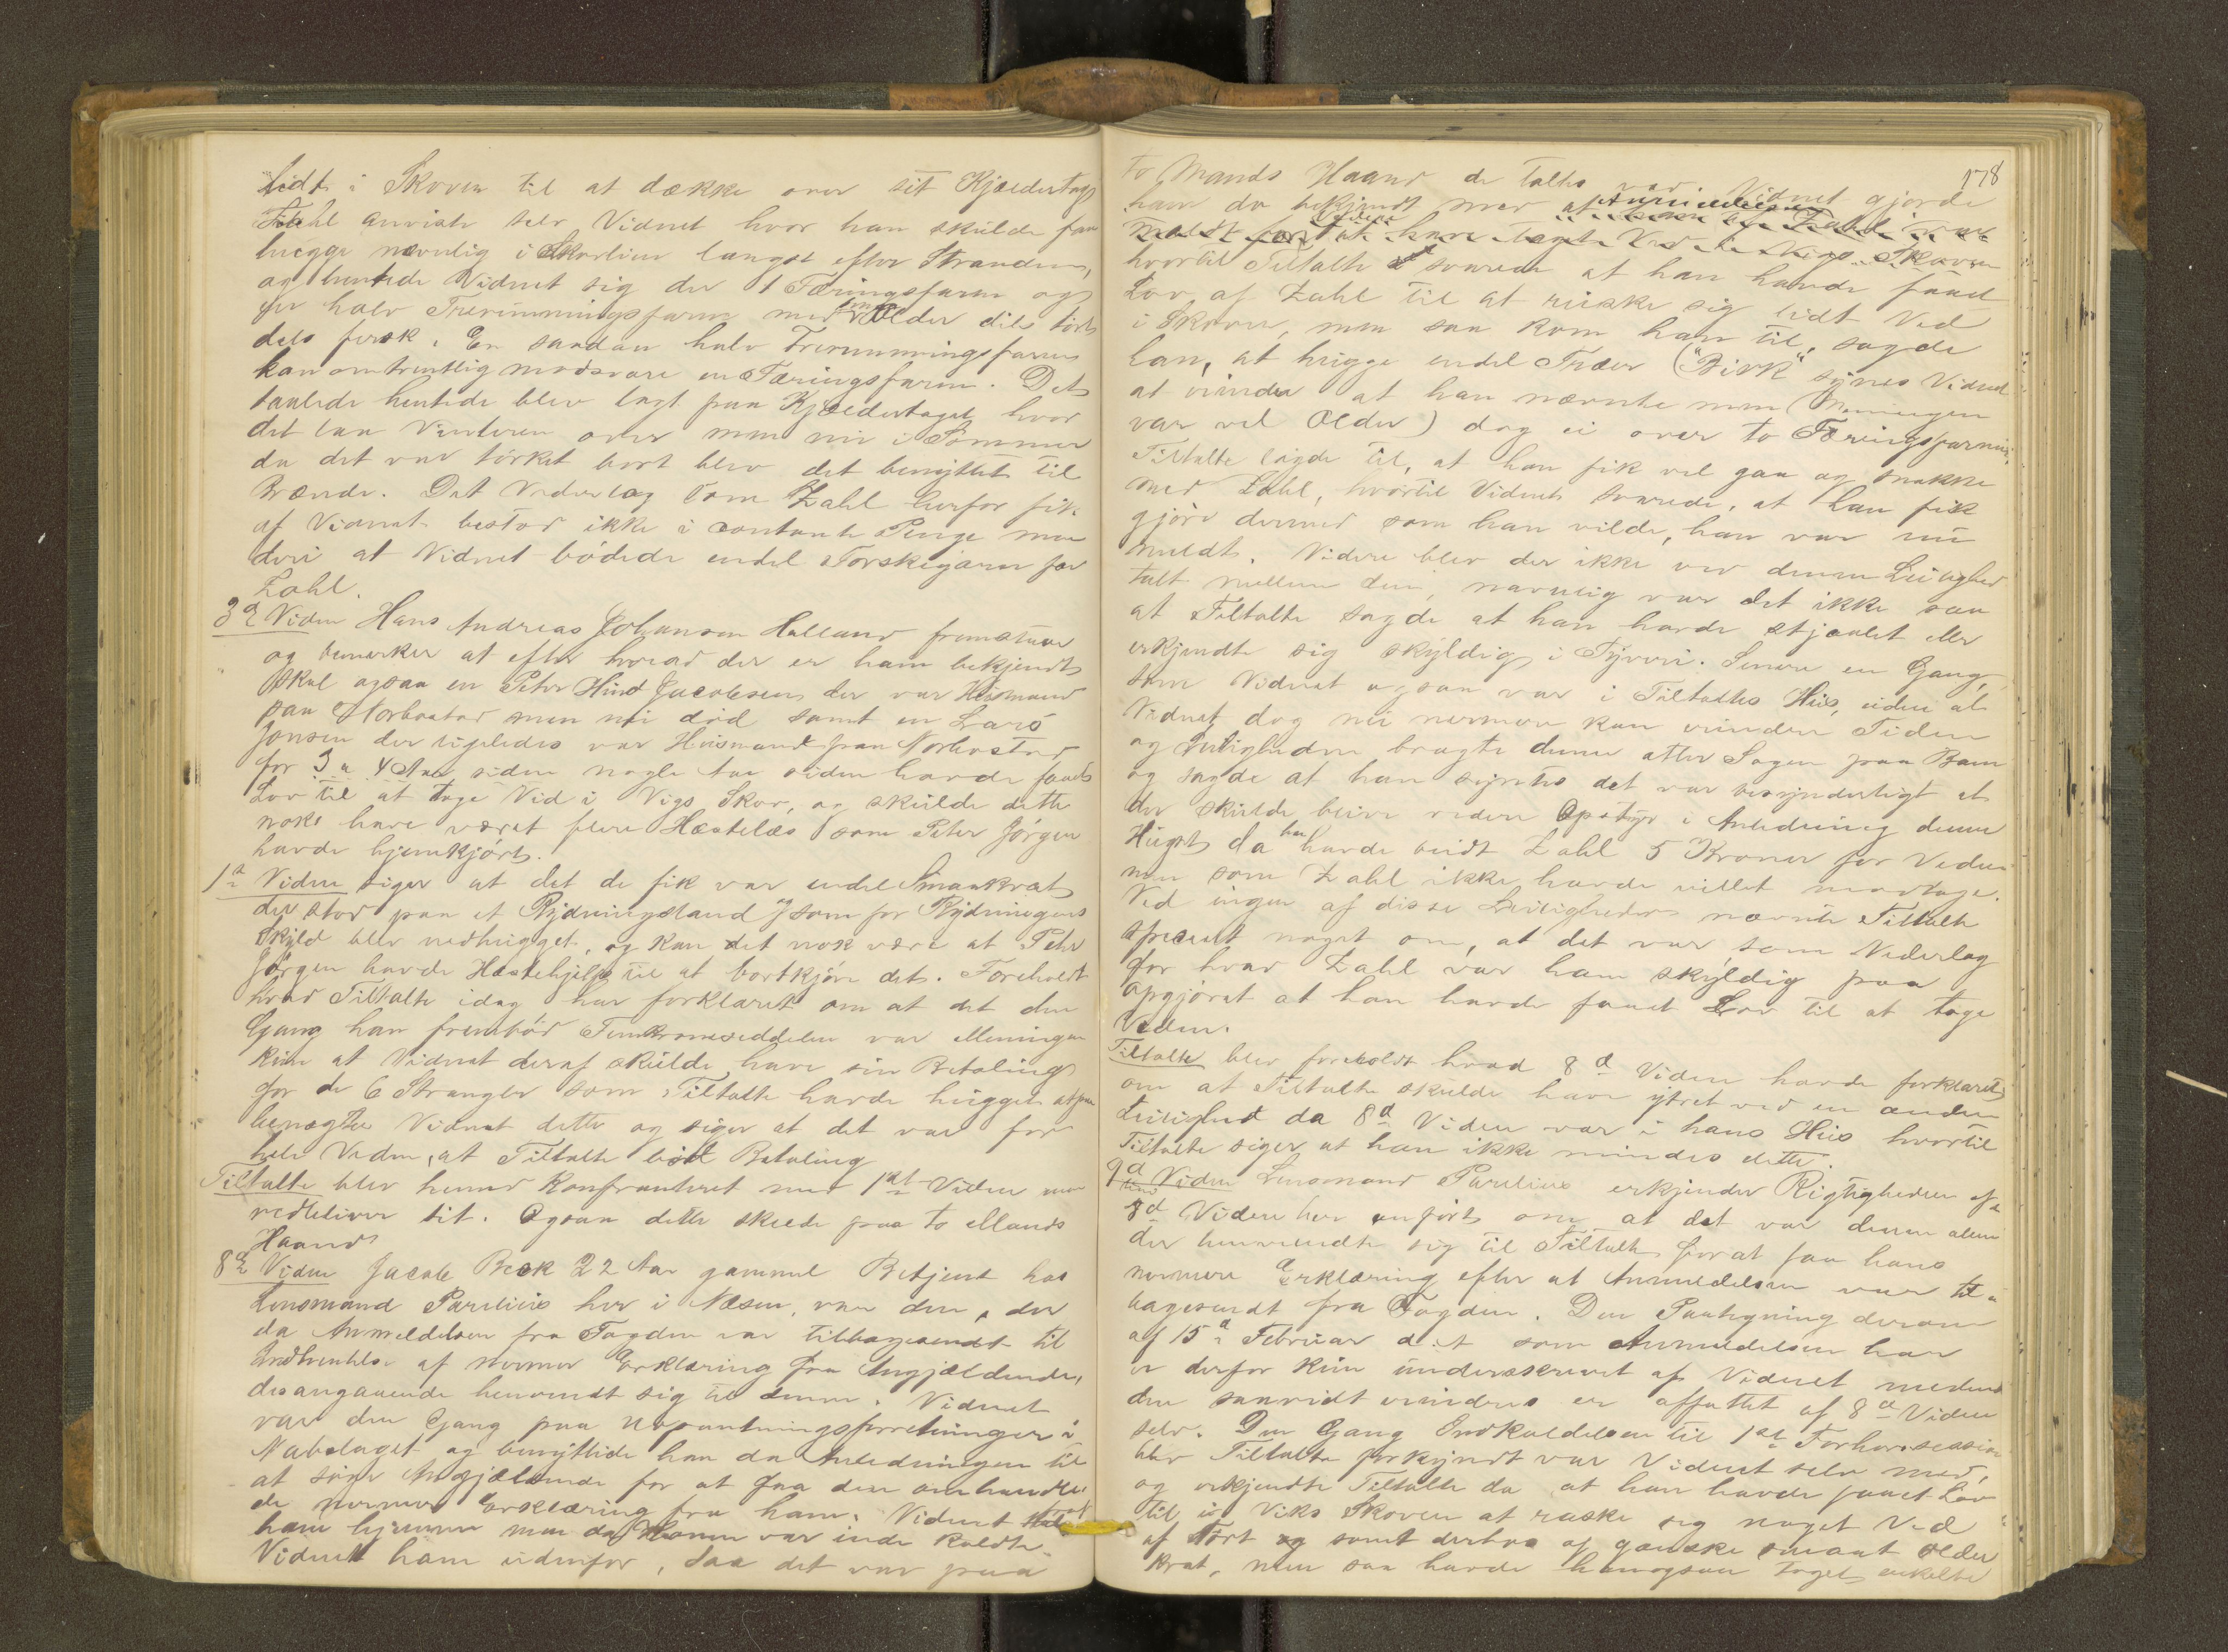 lidt i Skoven til at dække over sit Kjældertag
Zahl anviste selv Vidnet hvor han skulde faa
hugge nævnlig i Skovlien langst efter Stranden,
og hentede Vidnet sig der 1 Færingsfarm og
en halv Trerumningsfarm med smaa Older dels tørt
dels fersk. En saadan halv Trerumningsfarm
kan omtrentlig modsvare en Færingsfarm. Det
saaledes hentede blev lagt paa Kjældertaget hvor
det laa Vinteren over men nu i Sommer
da det var tørket bort blev det benyttet til
Brænde. Det Vederlag som Zahl herfor fik
af Vidnet bestod ikke i contante Penge men
deri at Vidnet bødede endel Torskegarn for
Zahl.
3d Vidne Hans Andreas Johansen Halland fremstaar
og bemerker at efter hvad der er ham bekjendt
skal ogsaa en Peter Hind Jacobsen der var Husmand
paa Norbostad men nu død samt en Lars
Jonsen der ligeledes var Husmand paa Norbostad
for 3 a 4 Aar siden nogle Aar siden havde faaet
Lov til at tage Ved i Vigs Skov, og skulde dette
nok have været flere Hestelæs som Peter Jørgen
havde hjemkjørt.
1ste Vidne siger at det de fik var endel Smaakrat
der stod paa et Rydningsland og som for Rydningens
Skyld blev nedhugget, og kan det nok være at Peter
Jørgen havde Hestehjelp til at bortkjøre det. Foreholdt
hvad Tiltalte idag har forklaret om at det den
Gang han frembød Femkroneseddelen var Meningen
kun at Vidnet deraf skulde have sin Betaling
for de 6 Stranger som Tiltalte havde hugget
benægter Vidnet dette og siger at det var for
hele Veden, at Tiltalte bød Betaling
Tiltalte blev herved konfronteret med 1ste Vidne men
vedbliver sit. Ogsaa dette skede paa to Mands
Haand
8de Vidne Jacob Beck 22 Aar gammel Betjent hos
Lensmand Parelius her i Næsen, var den, der
da Anmeldelsen fra Fogden var tilbagesendt til
Indhentelse af nermere Erklæring fra Angjældende,
desangaaende henvendt sig til denne. Vidnet
var den Gang paa Udpantningsforretninger i
Nabolaget og benyttede han da Anledningen til
at søge Angjældende for at faa den omhandle
de nermere Erklæring fra ham. Vidnet traf
ham hjemme men da Konen var inde kaldte
Vidnet ham udenfor, saa det var paa
178
to Mands Haand de taltes ved. Vidnet gjorde
ham da bekjendt med at Anmeldelsen
hvortil Tiltalte svarede at han havde faaet
Lov af Zahl til at ruske sig lidt Ved
i Skoven, men saa kom han til, sagde
han, at hugge endel Træer ("Birk" synes Vidnet
at erindre at han nævnte men Meningen
var vel Older) dog ei over to Færingsfarme
Tiltalte lagde til, at han fik vel gaa og snakke
med Zahl, hvortil Vidnet svarede, at han fik
gjøre dermed som han vilde, han var nu
meldt. Videre blev der ikke ved denne Leilighed
talt mellem dem, navnlig var det ikke saa
at Tiltalte sagde at han havde stjaalet eller
erkjendte sig skyldig i Tyveri. Senere en Gang,
som Vidnet ogsaa var i Tiltaltes Hus, uden at
Vidnet dog nu nermere kan erindre Tiden
og Leiligheden bragte denne atter Sagen paa Bane
og sagde at han syntes det var besynderligt at
der skulde blive videre Opstyr i Anledning denne
Hugst da han havde budt Zahl 5 Kroner for Veden
men som Zahl ikke havde villet modtage.
Ved ingen af disse Leiligheder nævnte Tiltalte
specielt noget om, at det var som Vederlag
for hvad Zahl var ham skyldig paa
Opgjøret at han havde faaet Lov til at tage
Veden.
Tiltalte blev foreholdt hvad 8de Vidne havde forklaret
om at Tiltalte skulde have ytret ved en anden
Leilighed da 8de Vidne var i hans Hus hvortil
Tiltalte siger at han ikke mindes dette.
9de Vidne Lensmand Parelius erkjender Rigtigheden af
8de Vidne her anført om at det var denne alene
der henvendte sig til Tiltalte for at faa hans
nermere Erklæring efter at Anmeldelsen var til=
bagesendt fra Fogden. Den Paategning derom
af 15de Februar d: A som Anmeldelsen har
er derfor kun underskrevet af Vidnet medens
den saavidt erindres er affattet af 8de Vidne
selv. Den Gang Indkaldelsen til 1ste Forhørssession
blev Tiltalte forkyndt var Vidnet selv med,
og erkjendte Tiltalte da at han havde faaet Lov
til i Viks Skoven at raske sig noget Ved
af Tørt og samt derhos af ganske smaat Older
Krat, men saa havde han ogsaa taget enkelte